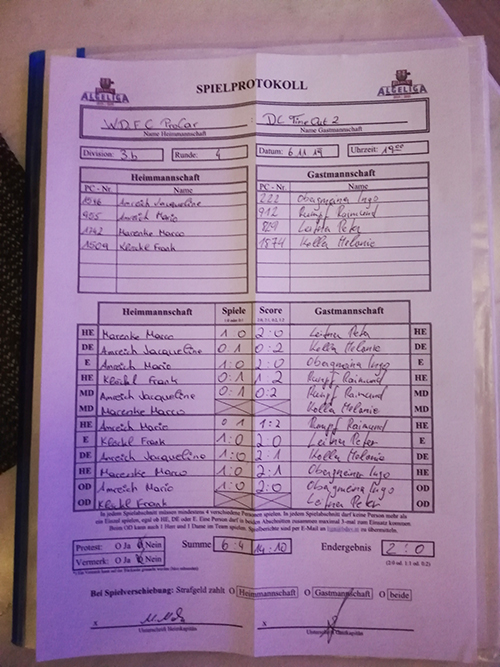 ALGELIGA
ALGELIGA
SPIELPROTOKOLL
W.D.F.C ProCar
DC TimeOut 2
Name Heimmannschaft
Name Gastmannschaft
Division: 3b Runde: 4 Datum: 6.11.19 Uhrzeit: 19:00
Heimmannschaft Gastmannschaft
PC - Nr. Name PC - Nr. Name
Amreich Jacqueline 222 Ingo
905 Amreich Mario 912 Rumpf Raimund
1242 Marenke Marco 829 Leitner Peter
1509 Kleickl Frank 1574 Kolla Melanie
Heimmannschaft Spiele Score Gastmannschaft
HE Marenke Marco 1 0 2:0 Leitner Peter HE
DE Amreich Jacqueline 0:1 0:2 Kolla Melanie DE
E Amreich Mario 1:0 2:0 Ingo E
HE Frank 0:1 1:2 Rumpf Raimund HE
MD Amreich Jacqueline 0:1 0:2 Rumpf Raimund MD
MD Marenke Marco Kolla Melanie MD
HE Amreich Mario 0 1 1:2 Rumpf Raimund HE
E Frank 1:0 2:0 Leitner Peter E
DE Amreich Jacqueline 1:0 2:1 Kolla Melanie DE
HE Marenke Marco 1:0 2:1 Ingo HE
OD Amreich Mario 1:0 2:0 Ingo OD
OD Frank Leitner Peter OD
In jedem Spielabschnitt müssen mindestens 4 verschiedene Personen spielen. In jedem Spielabschnitt darf keine Person mehr als
ein Einzel spielen, egal ob HE, DE oder E. Eine Person darf in beiden Abschnitten zusammen maximal 3-mal zum Einsatz kommen
Beim OD kann auch 1 Herr und 1 Dame an Team spielen. Spielberichte sind per E-Mail an zu übermitteln.
Protest: O Ja O Nein Summe 6:4 14:10 Endergebnis 2:0
Vermerk: O Ja O Nein (2:0 od. 1:1 od. 0:2)
Bei Spielverschiebung: Strafgeld zahlt O Heimmannschaft O Gastmannschaft O beide
x x
Unterschrift Teamkapitän Unterschrift Teamkapitän